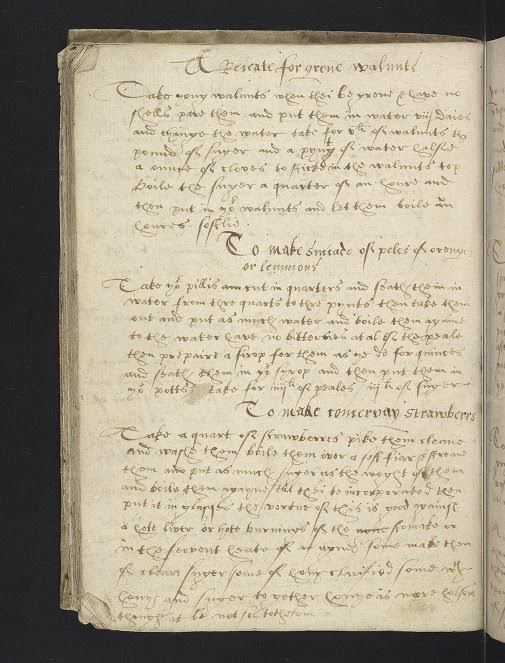 A Reicate for grene walnuts
Take yong walnuts when thei be grene & have no
shells pare them and put them in water viij daies
and change the water take for of walnuts
pounde of suger and a pynt of water halfe
a ounce of cloves to sticke in the walnuts top
boile the suger a quarter of an houre and
then put in yor walnuts and let them boile an
houres
To make sucade of peles of orenges
or lemmons
Take yor pillis cut in quarters and seath them in
water from thre quarts to thre pynts then take them
out and put as much water and boile them againe
to the water have no bitternes at al of the peale
then prepaire a sirop for them as ye do for quinces
and seath them in yor syrop and then put them in
yor potts take for iiij li of peales iij li of suger
To make conserva strawberres
Take a quart of strawberres pike them cleane
and washe them boile them over a soft fiar & streane
them and put as much suger as the weght of them
and boile them agayne till thei be incorporated then
put it in glasses the vertue of this is good against
a hott liver or hott burnings of the stomake or
in the fervent heate of an agewe some make them
of cleane suger some of hony clarified some with
hony and suger to gether honye is more holsom
though it be not so tothesom